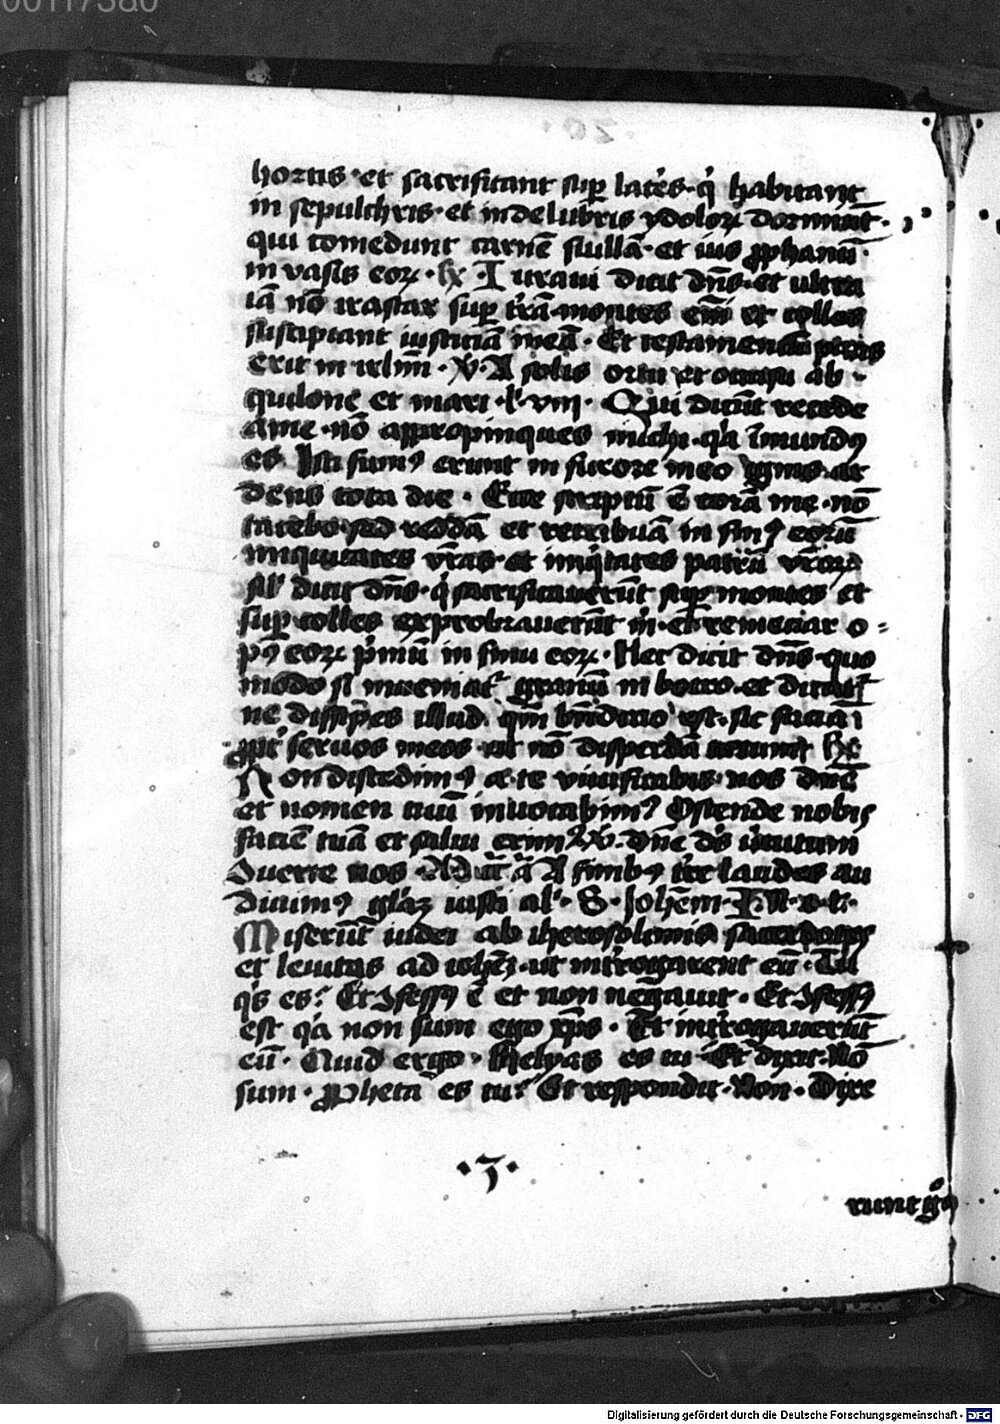 00117380
hortis · et sacrificant sup̲ lat̾es · q̇ habitant
in sepulchris · et in delubris ydoloꝝ dormiūt ·
qui comedunt carnē suillā · et ius ꝓphanū ·
in vasis eoꝝ · Iuraui dicit dn̄s · et ultra
iā nō irascar sup̲ t̾rā · montes em̄ et colles
suscipiant iusticiā meā · Et testamentū pacis
erit in irl̄m · ℣ · A solis ortu et occasu ab
quilone et mari · l · viii · Qui dicūt recede
a me · nō appropinques michi · q̇a īmundꝰ
es Isti fumꝰ erunt in furore meo ignis ar
dens tota die · Ecce scriptū ē corā me · nō
tacebo · sed reddā et retribuā in sinꝰ eorū
iniquitates vr̄as · et iniq̇tates patrū vr̄oꝝ
sl̄ dicit dn̄s · q̇ sacrificauerūt sup̲ montes et
sup̲ colles exprobrauerūt m̄ · et remeciar o =
pꝰ eoꝝ p̄mū in sinu eoꝝ · Hec dicit dn̄s · quo
modo si inueniat᷑ granū in botro · et dicat᷑
ne dissipes illud · qm̄ bn̄dictio est · sic faciā
ꝓpt̾ seruos meos · ut nō disperdā
Non discedimꝰ a te viuificabis nos dn̄e
et nomen tuū inuocabimꝰ Ostende nobis
faciē tuā et salui erimꝰ ℣ · dn̄e dꝰs v̾tutum
ꝯuerte nos · A finibꝰ t̾re laudes au
diuimꝰ gl̄aꝫ iusti al̾ · S · Joh̄em ·
Miserūt iudei ab iherosolimis sacerdotes
et leuitas ad ioh̄eꝫ · ut int̾rogarent eū · Tu
q̇s es? Et ꝯfessꝰ ē et non negauit · Et ꝯfessꝰ
est q̇a non sum ego xp̄s · Et int̾rogauerūt
eū · Quid ergo · Helyas es tu · Et dixit · Nō
sum · ꝓpheta es tu? Et respondit · Non · Dixe
· 3 ·
runt g̊
Digitalisierung gefördert durch die Deutsche Forschungsgemeinschaft - DFG